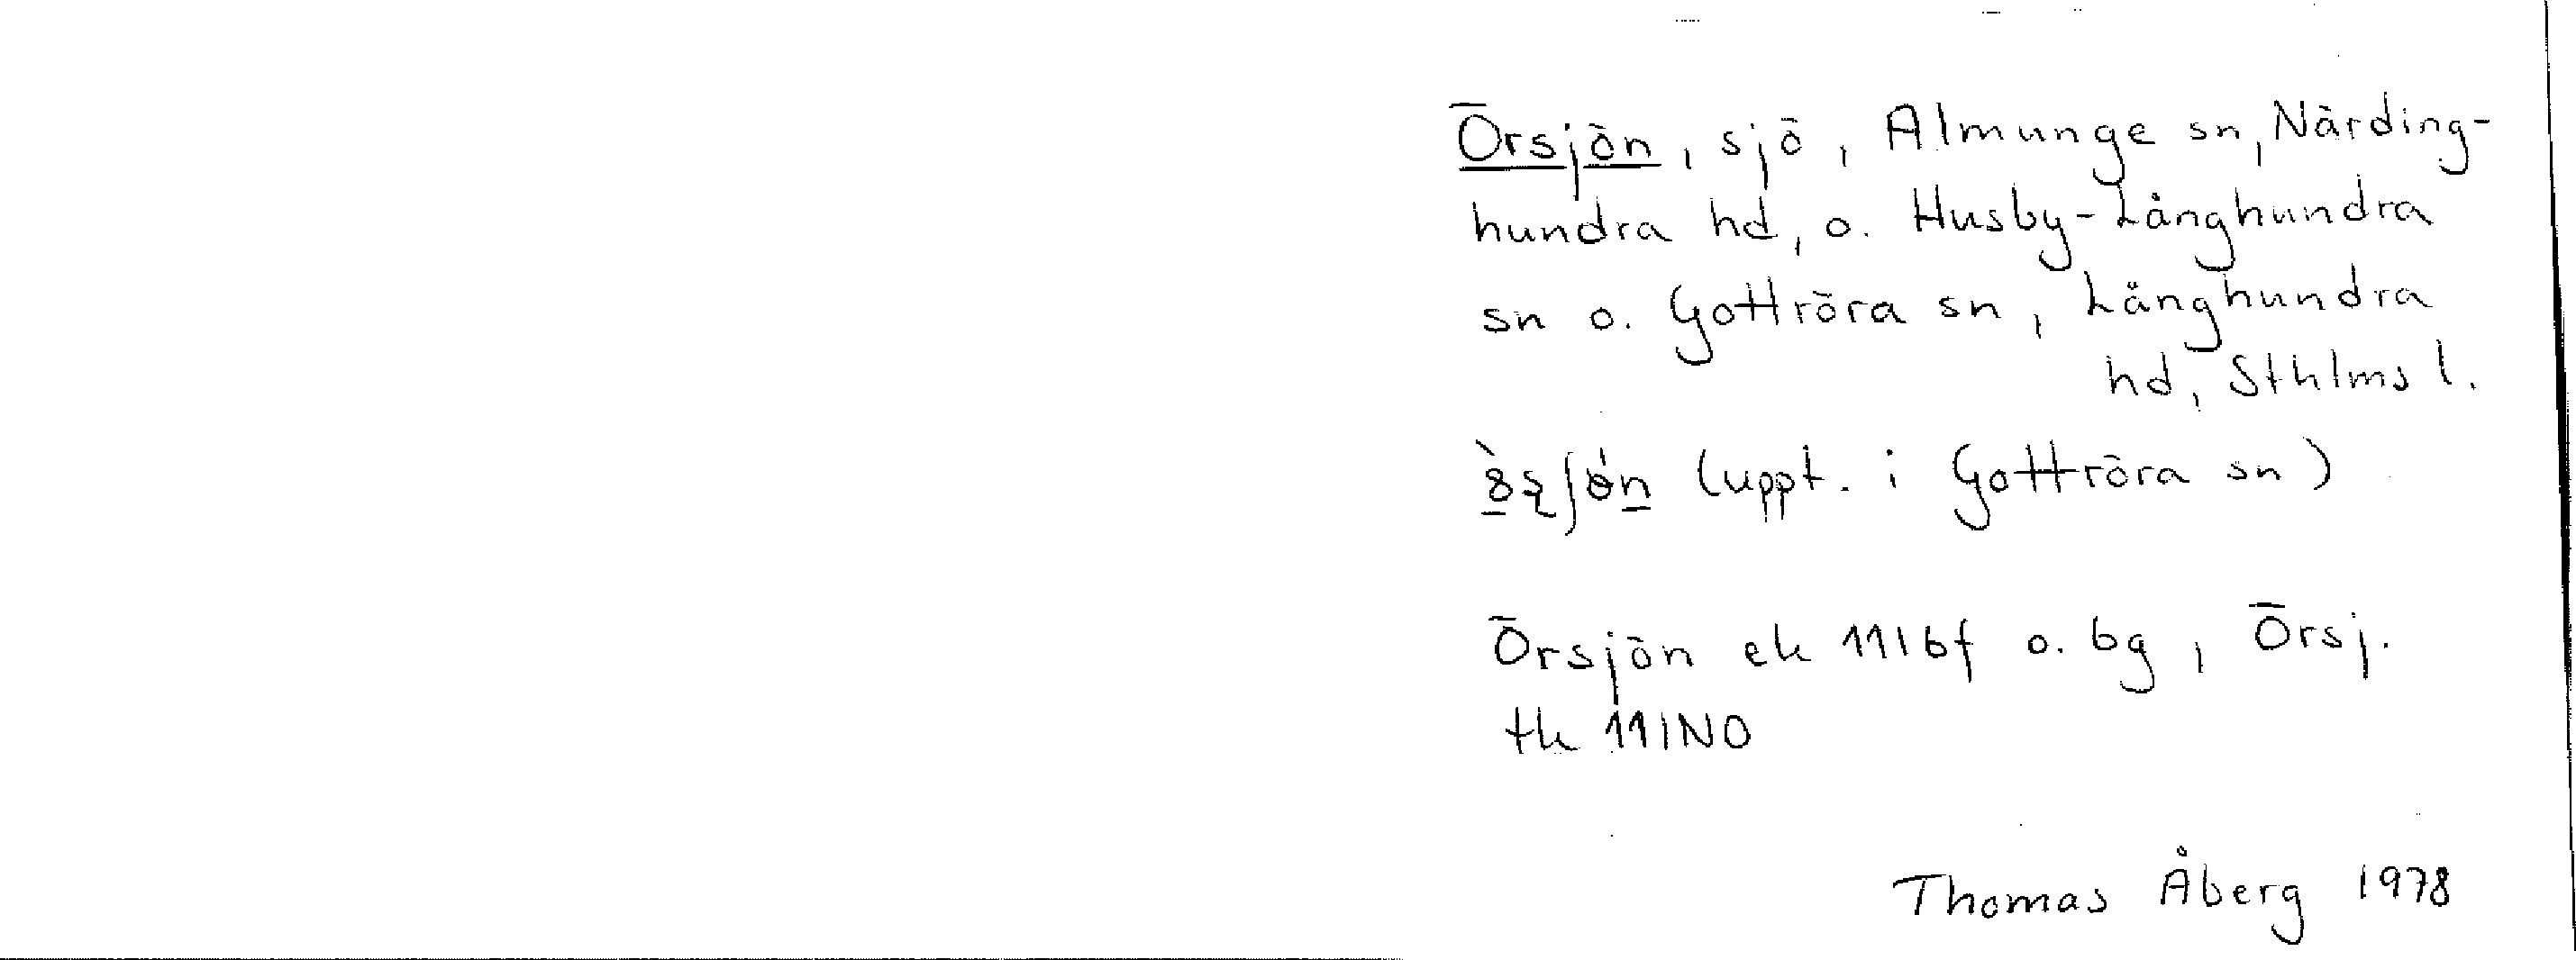 Örsjön, sjö, Almunge sn, Närding-
hundra hd, o. Husby-Långhundra
sn o. Gottröra sn, Långhundra
hd, Sthlms l.
(uppt. i Gottröra sn)
Örsjön ek 11I6f o. 6g, Örsj.
tk 11INO
Thomas Åberg 1978